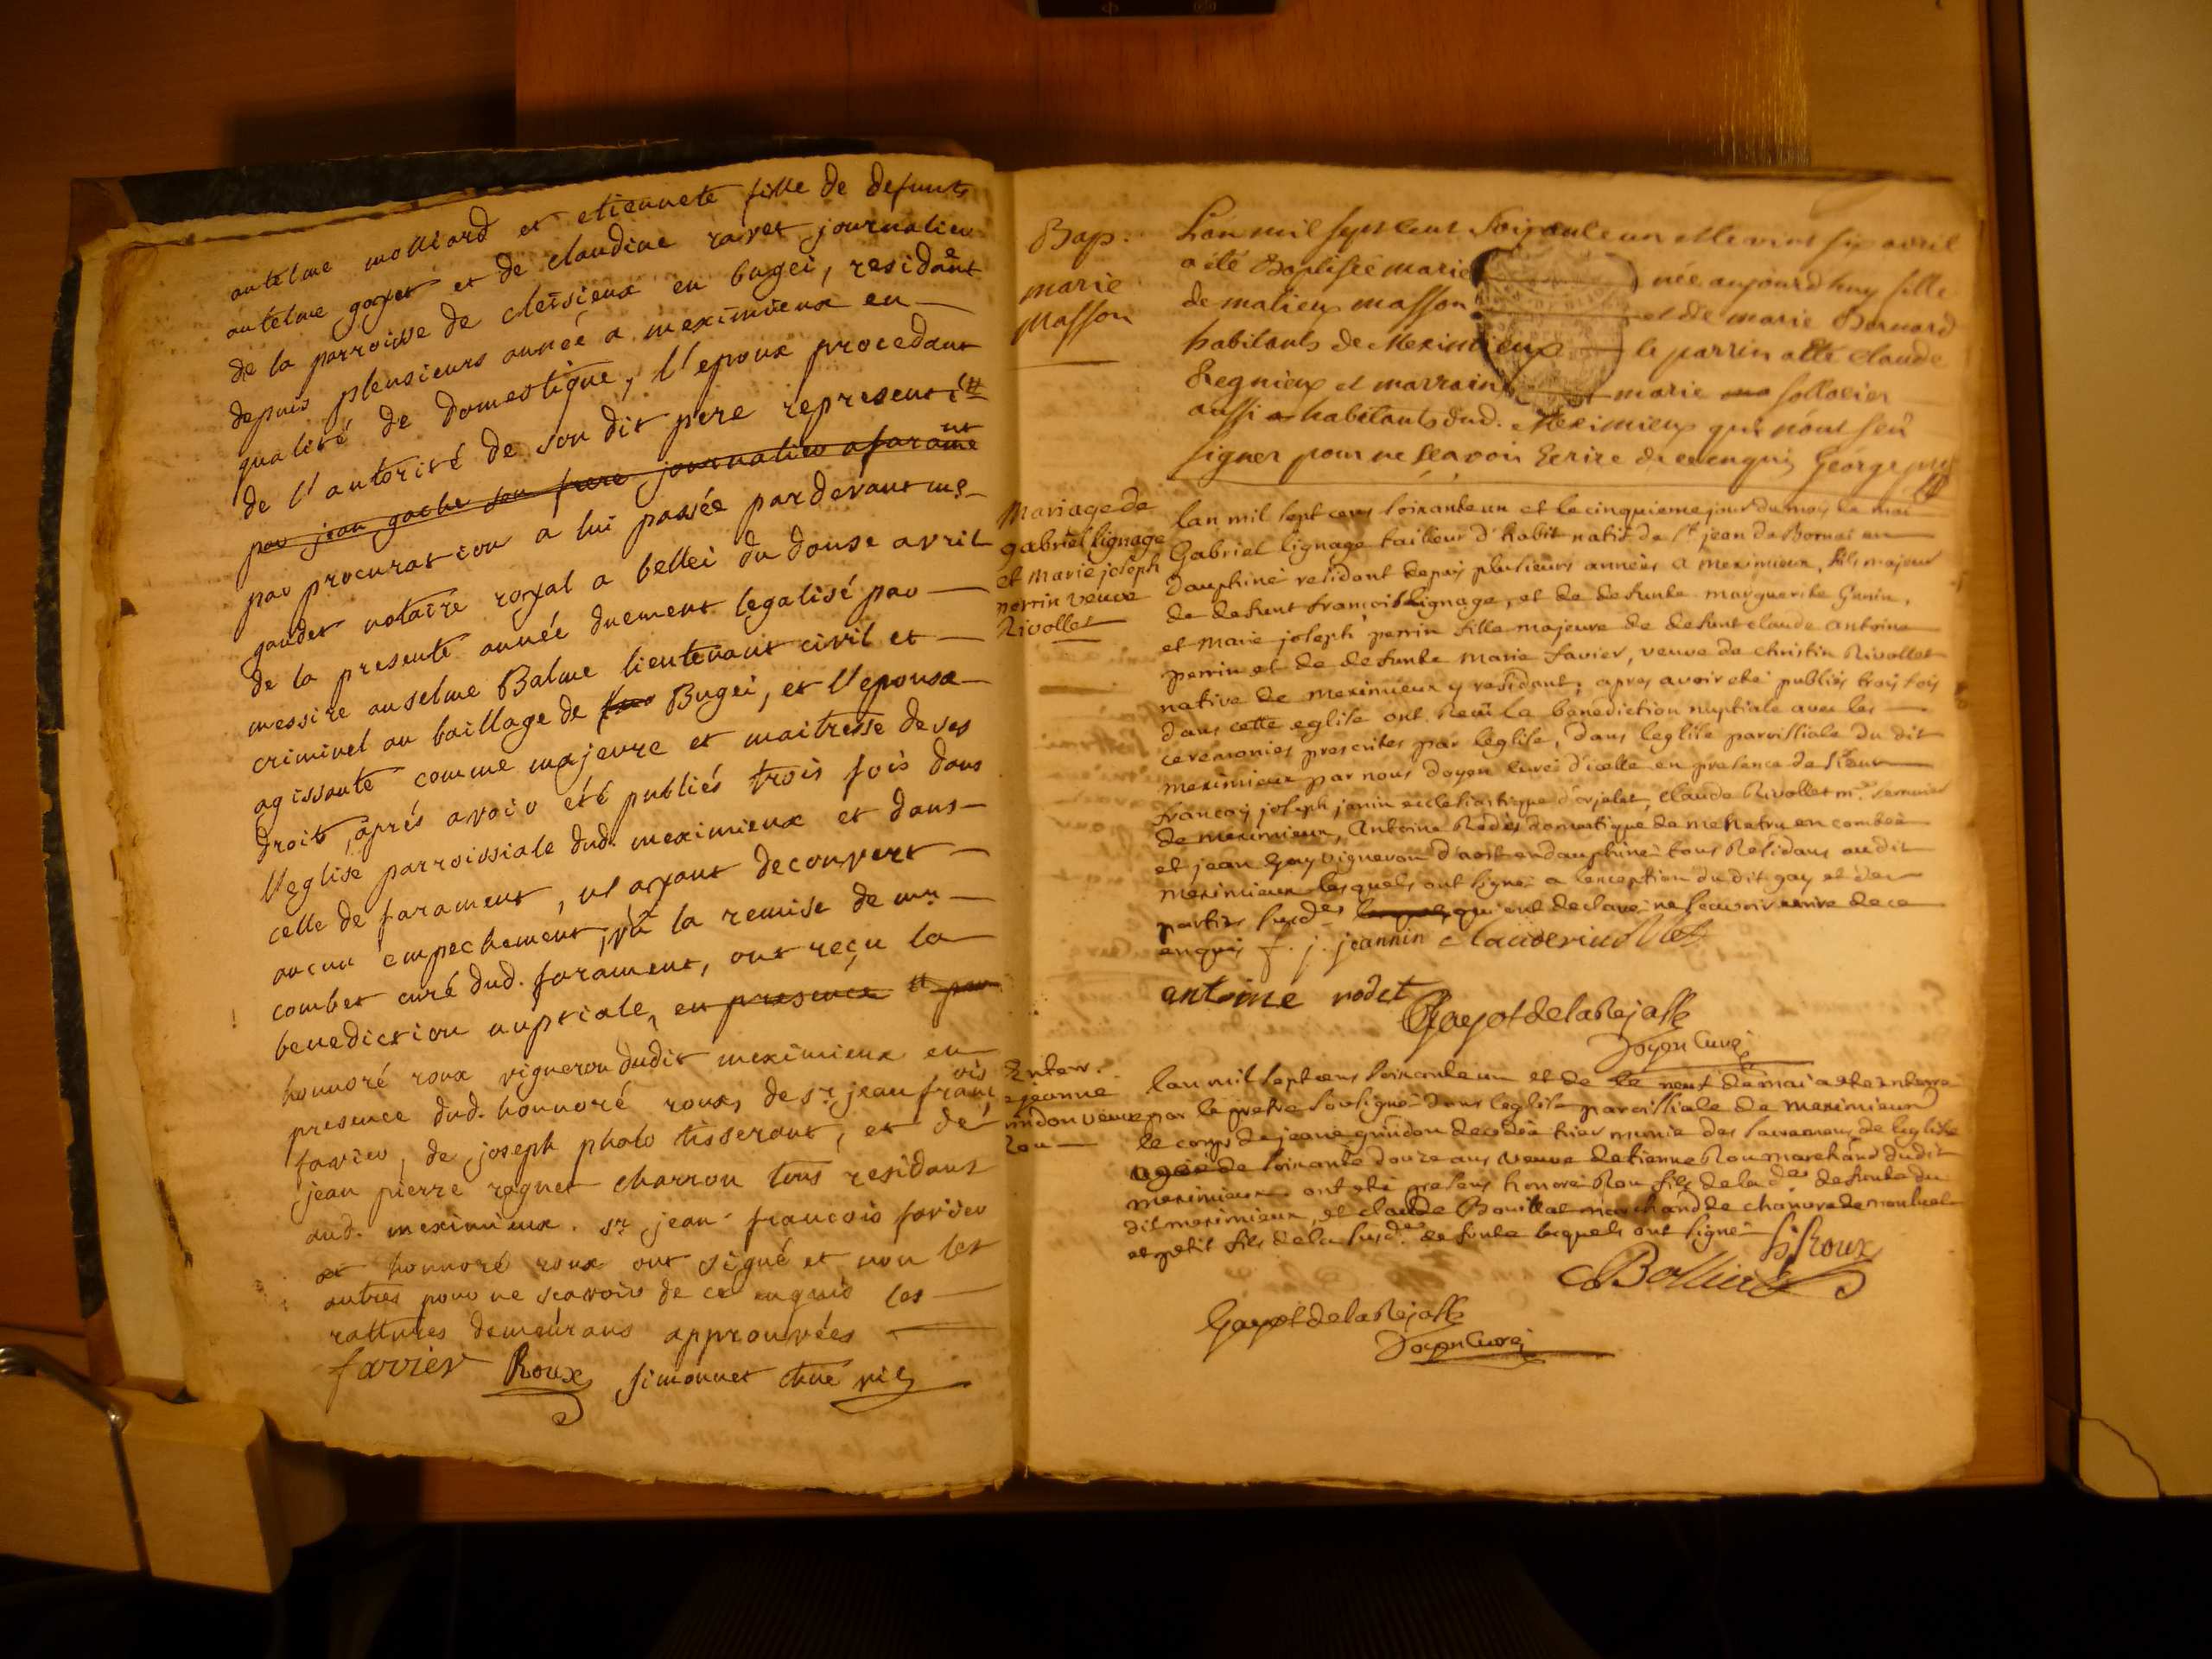 antelme molliard et etiennete fille de defunts
antelme goyet et de claudine ravet journalier
de la parroisse de cleisieux en bugei, residente
depuis plensieurs année a meximieux en
qualité de domestique, l'epoux procedant
de l'autorité de son dit pere represent
par jean gache son frere journalier a farament
par procuration a lui passée pardevant me
gaudet notaire royal a bellei du douse avril
de la presente année duement legalisé par
messire anselme Balme lieutenant civil et
criminel au baillage de Bugei, et l'epouse
agissante comme majeure et maitresse de ses
droits, aprés avoir été publiés trois fois dans
l'eglise parroissiale dud. meximieux et dans
celle de farament, ni ayant decouvert
aucun empechement, vû la remise de mr.
combet curé dud. farament, ont reçu la
benediction nuptiale, en presence et par
honnoré roux vigneron dudit meximieux en
presence dud. honnoré roux, de sr. jean francois
favier, de joseph pholo tisserant, et de
jean pierre rognet charron tous residans
aud. meximieux. sr. jean françois favier
et honnoré roux ont signé et non les
autres pour ne scavoir de ce enquis les
rattures demeurans approuvées
favier Roux simonnet
Bap.
marie
Masson
L'an mil sept cent soixante un et le vint six avril
a été Baptisée marie née aujourd'huy fille
de matieu masson et de marie Bernard
habitants de Meximieux le parrin a été claude
Regnieux et marraine marie sollocier
aussi habitants dud. Meximieux qui n'ont sçû
signer pour ne sçavoir Ecrire de ce enquis George
Mariage de
gabriel lignage
et marie joseph
perrin veuve
Rivollet
lan mil sept cens soixante un et le cinquieme jour du mois de mai
Gabriel lignage tailleur d'habit natif de st jean de Bornai en
dauphiné residant depuis plusieurs années a meximieux, fils majeur
de defunt françois lignage, et de defunte marguerite Genin,
et marie joseph perrin fille majeure de defunt claude antoine
perrin et de defunte marie favier, veuve de christin Rivollet
native de meximieux y residant; apres avoir eté publiés trois fois
dans cette eglise ont Receu la bénédiction nuptiale avec les
ceremonies prescrites par leglise, dans leglise paroissiale du dit
meximieux par nous doyen curé d'icelle en presence de sieur
francois joseph janin ecclesiastique d'orjelet, claude Rivollet me
de meximieux, Antoine Rodet domestique de
et jean Gay vigneron d'aost en dauphiné tous Residans audit
meximieux lesquels ont signé a l'exception du dit gay et des
parties susdes qui ont declaré ne scavoir ecrire de ce
enquis f. j. jeannin claude rivollet
antoine rodet
Gayot de la Rejasse
Doyen Curé
Enterr.
jeanne
veuve
Rou
lan mil sept cens soixante un et de le neuf de mai a ete enterré
par le pretre soussigné dans leglise paroissiale de meximieux
le corps de jeane guindon decedée hier munie des sacremens de leglise
agée de soixante douze ans veuve detienne Rou marchand dudit
meximieux. ont été presens honoré Rou fils de la de defunte du
dit meximieux, et claude marchand de chanvre de montluel
et petit fils de la susde defunte lesquels ont signé h. Roux
Gayot de la Rejasse
Doyen Curé